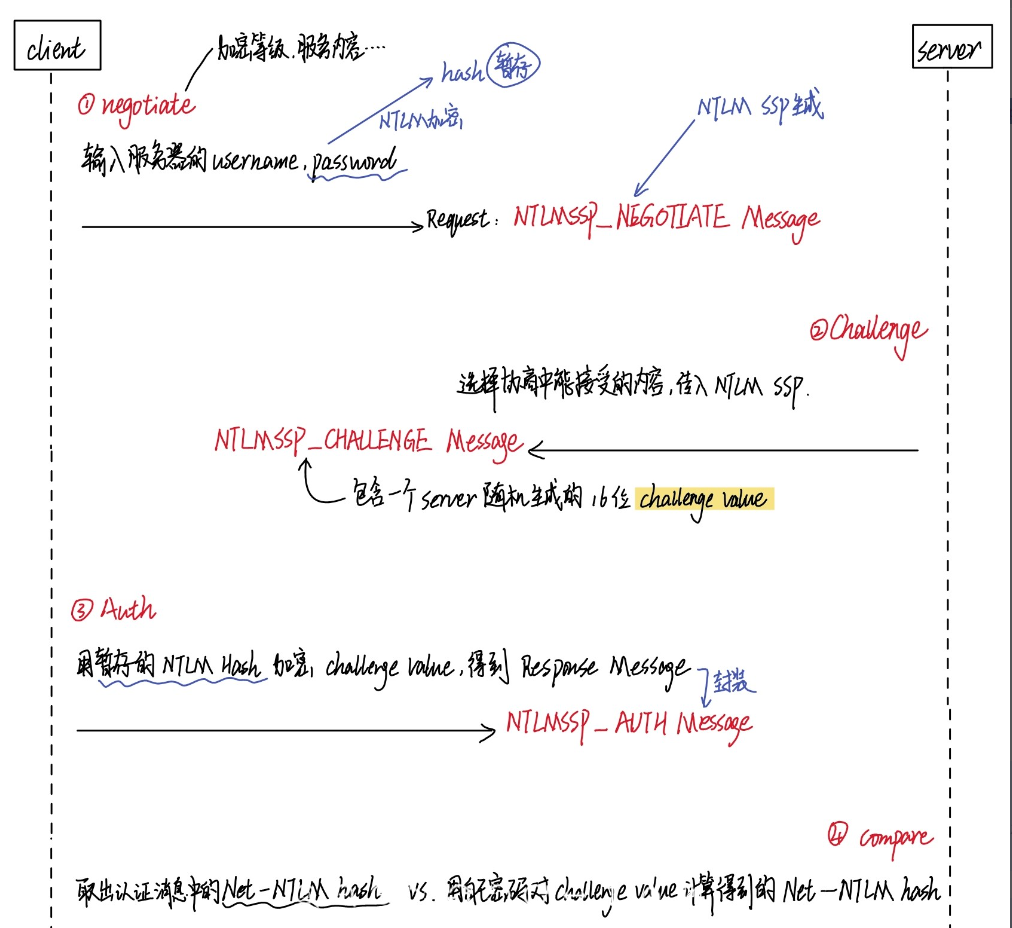 client
server
加密等级, 服务内容····
① negotiate
hash 暂存
NTLM加密
NTLM SSP生成
输入服务器的 username, password
Request: NTLMSSP_NEGOTIATE Message
② Challenge
选择协商中能接受的内容, 传入 NTLM SSP.
NTLMSSP_CHALLENGE Message
包含一个 server 随机生成的 16位 challenge value
③ Auth
用暂存的 NTLM Hash 加密 challenge value, 得到 Response Message
封装
NTLMSSP_AUTH Message
④ compare
取出认证消息中的 Net-NTLM hash vs. 用自己密码对 challenge value 计算得到的 Net-NTLM hash